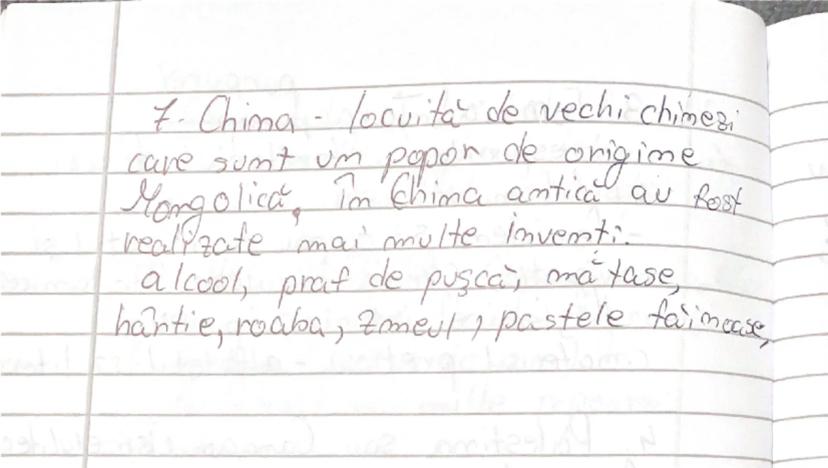 7. China - locuită de vechi chinezi
care sunt un popor de origine
Mongolică, în China antică au fost
realizate mai multe inventi:
alcool, praf de pușcă, mătase,
hântie, roaba, zmeul, pastele făinoase,